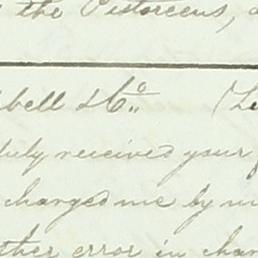 the Pistoreens,
bell & Co.
duly received your
charged me by
ther error in char